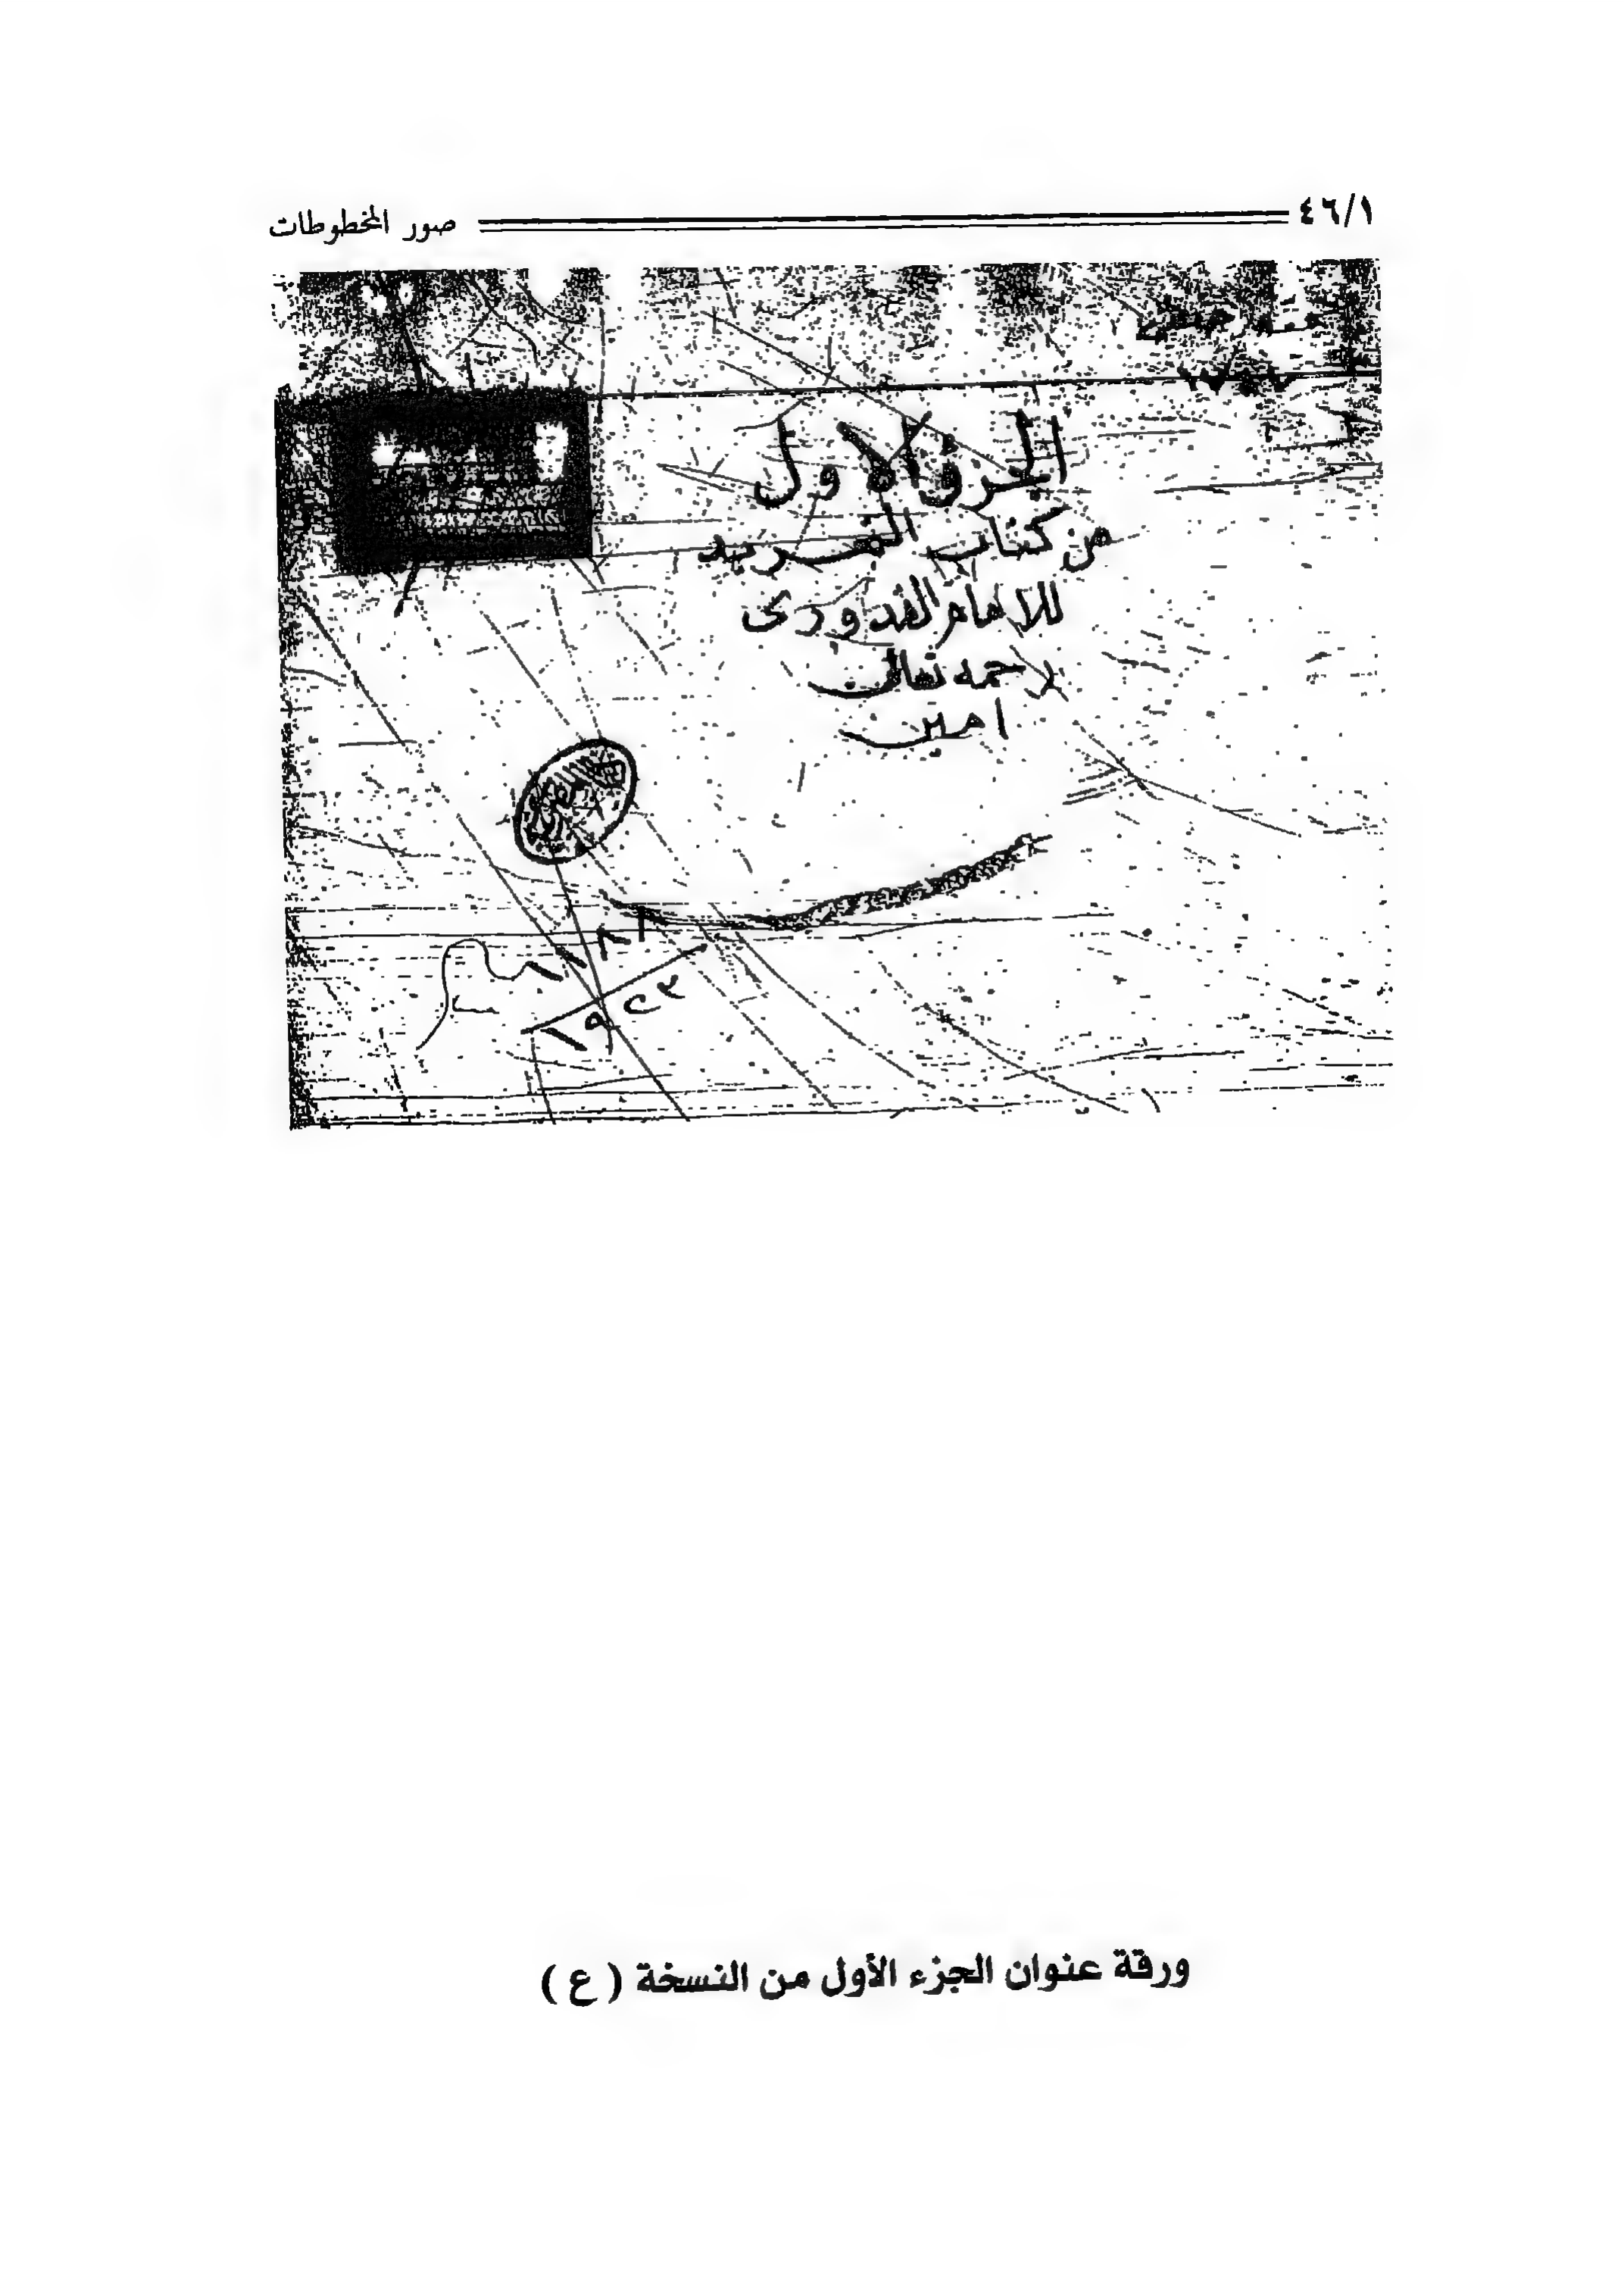 ٤٦/١ صور المخطوطات
الجزؤ الاول
من كتاب التجريد
للامام القدورى
رحمه تعالى
امين
١٩٢٣
ورقة عنوان الجزء الأول من النسخة ( ع )